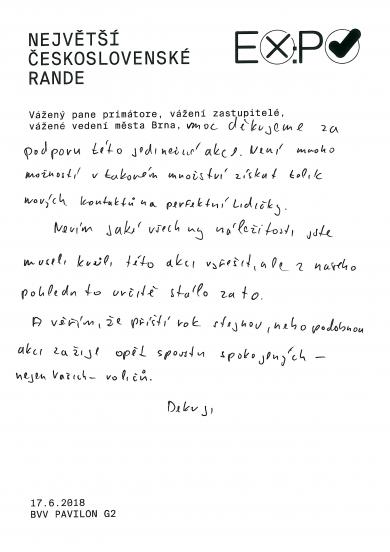 NEJVĚTŠÍ
ČESKOSLOVENSKÉ
RANDE
EXPO
Vážený pane primátore, vážení zastupitelé,
vážené vedení města Brna, moc děkujeme za
podporu této jedinečné akce. Není mnoho
možností v takovém množství získat tolik
nových kontaktů na perfektní lidičky.
Nevím jaké všechny náležitosti jste
museli kvůli této akci vyřešit, ale z našeho
pohledu to určitě stálo za to.
A věřím, že příští rok stejnou, nebo podobnou
akci zažije opět spousta spokojených –
nejen Vašich – voličů.
Děkuji
17.6.2018
BVV PAVILON G2